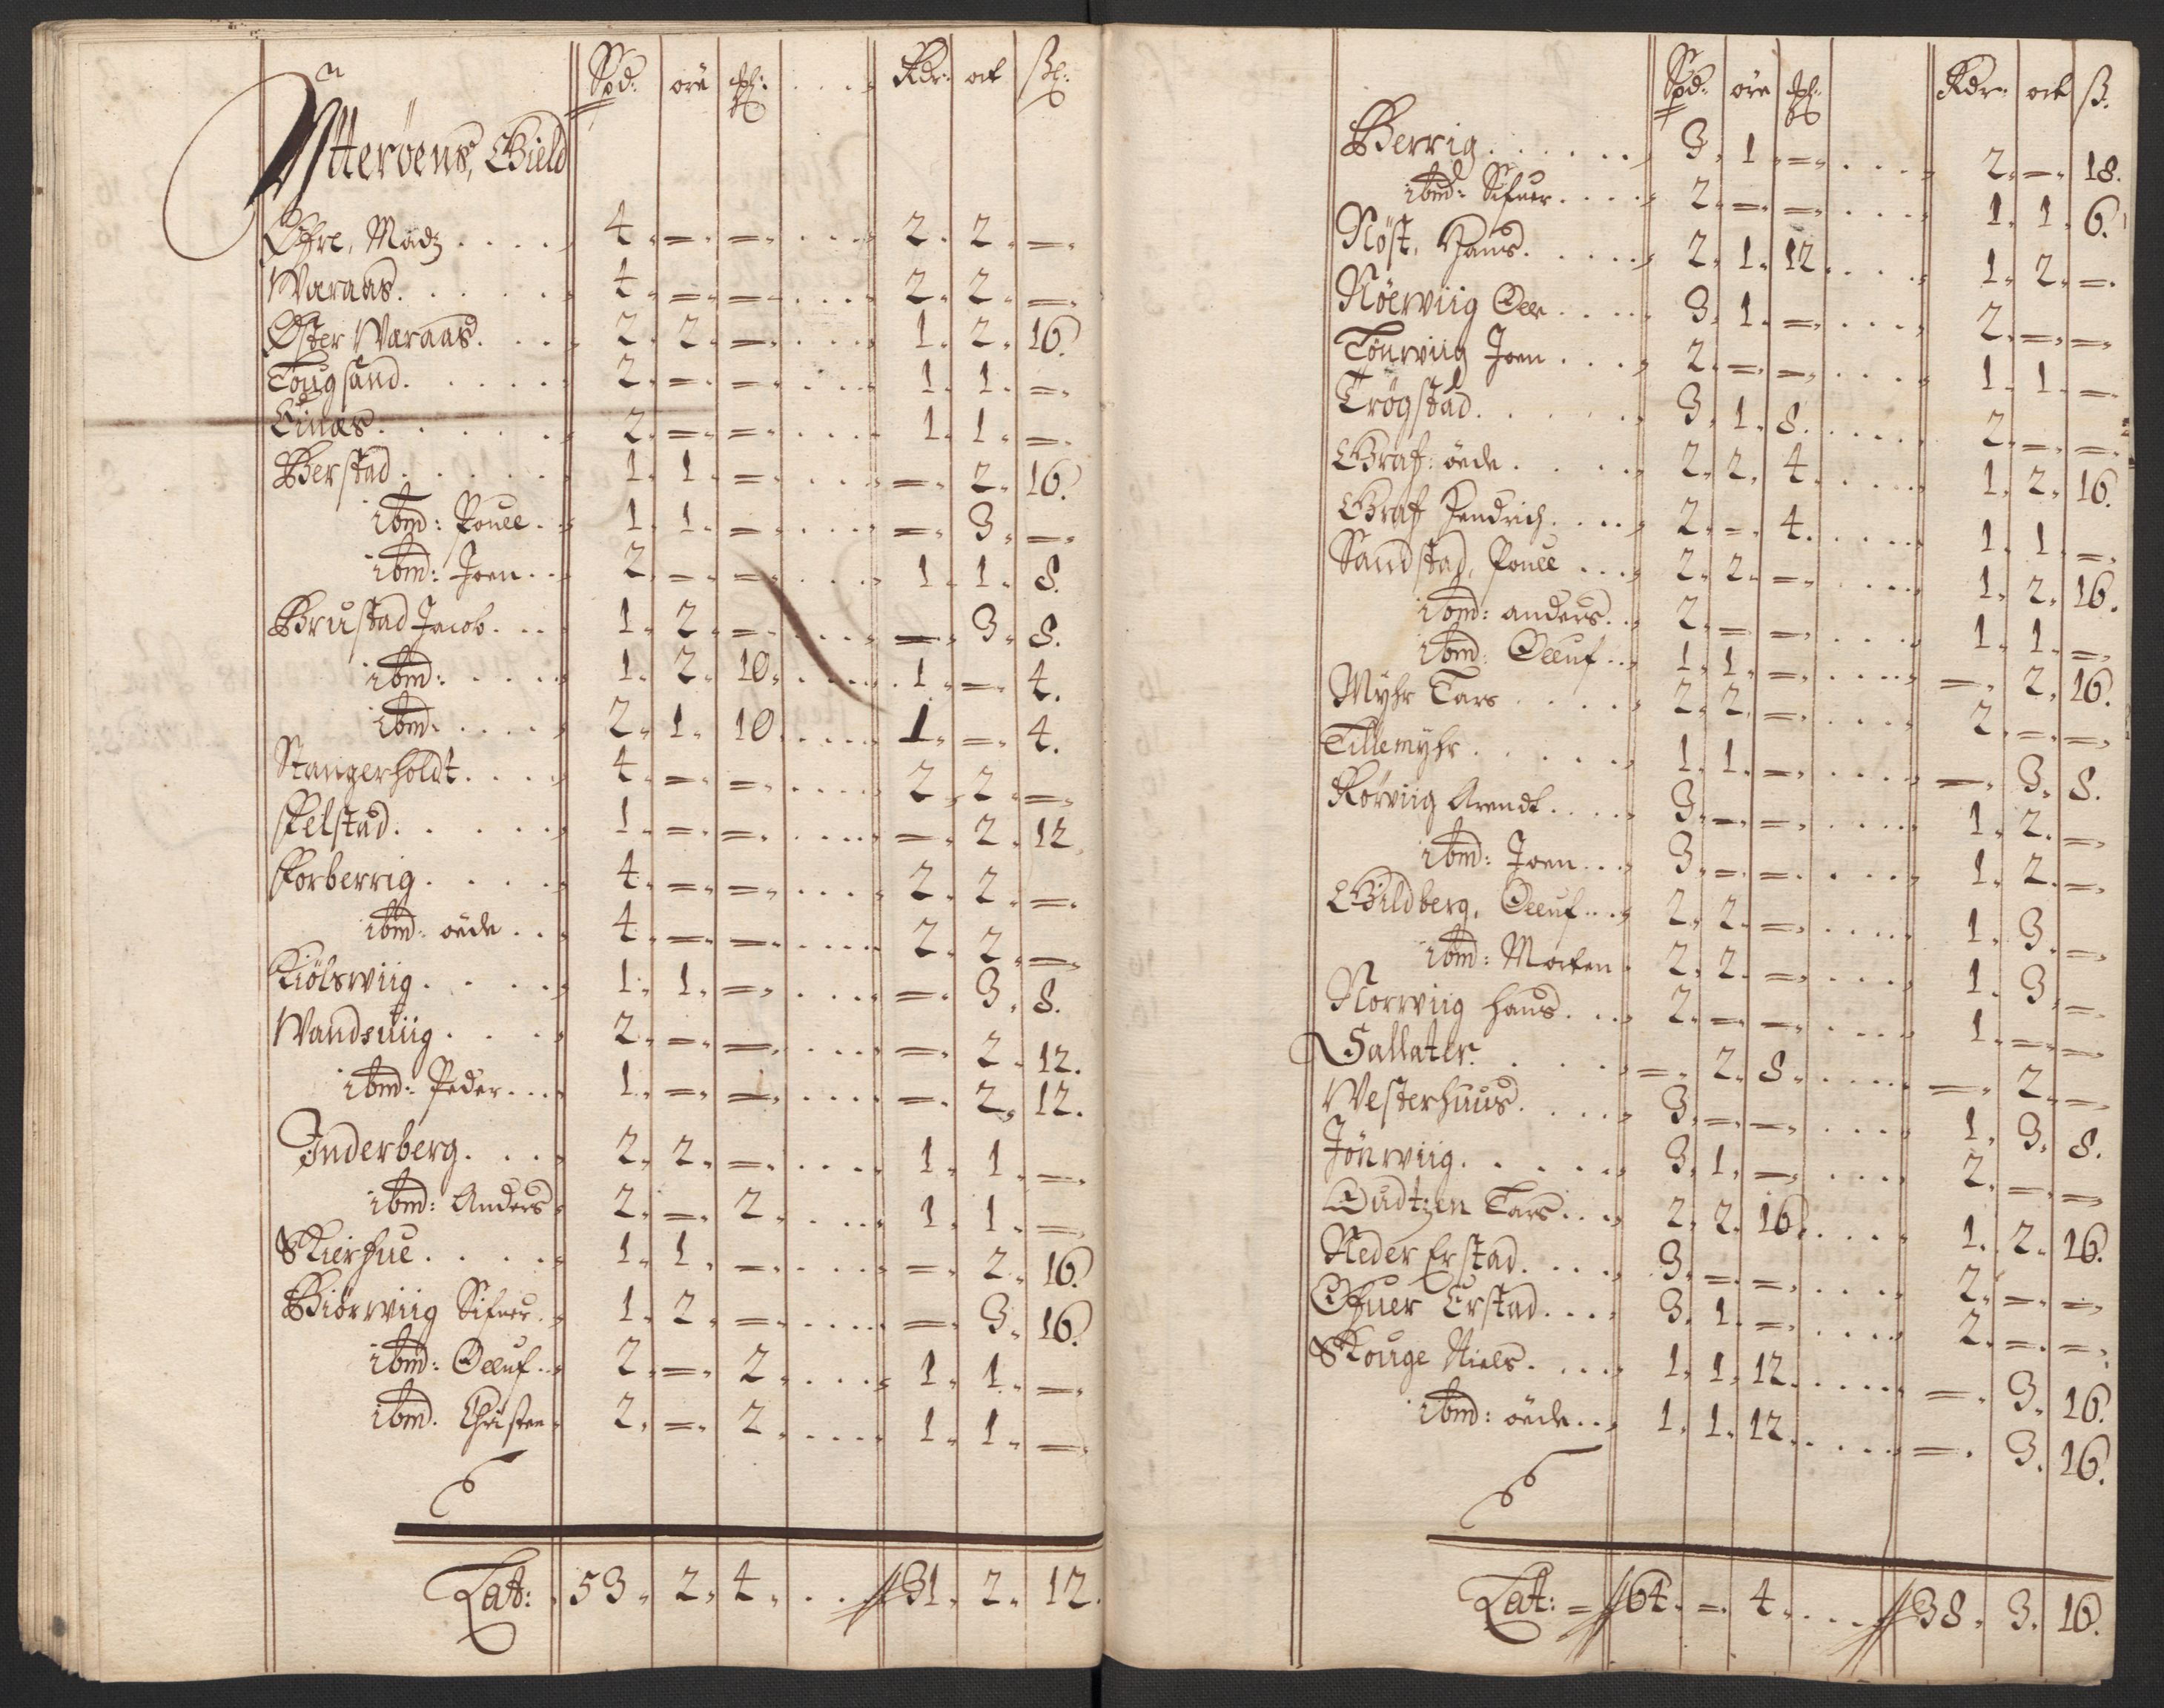 Spd: öre ₰: Rdr: ort ß:
Ytterøens, Gield
Øfre, Madz 4 = = 2 2 =
Waraas 4 = = 2 2 =
Øster Waraas 2 2 = 1 2 16
Tougsand 2 = = 1 1 =
Einæs 2 = = 1 1 =
Berstad 1 1 = = 2 16
ibmd: Pouel 1 1 = = 3 =
ibmd: Joen 2 = = 1 1 8
Brustad Jacob 1 2 = = 3 8
ibmd: 1 2 10 1 = 4
ibmd: 2 1 10 1 = 4
Stangerholdt 4 = = 2 2 =
felstad 1 = = = 2 12
forberrig 4 = = 2 2 =
ibmd: øede 4 = = 2 2 =
Kiölswiig 1 1 = = 3 8
Wandsuiig 2 = = = 2 12
ibmd: Peder 1 = = = 2 12
Inderberg 2 2 = 1 1 =
ibmd: Anders 2 = 2 1 1 =
Skierhue 1 1 = = 2 16
Biörwiig Sifuer 1 2 = = 3 16
ibmd: Oeluf 2 = 2 1 1 =
ibmd. Christen 2 = 2 1 1 =
Lat: 53 2 4 31 2 12
Spd: öre ₰: Rdr: ort ß:
Berrig 3 1 = 2 = 18
ibmd: Sifuer 2 = = 1 1 6
Nöst, Hans 2 1 12 1 2 =
Nöerwiig Oele 3 1 = 2 = =
Tönwiig Joen 2 = = 1 1 =
Trögstad 3 1 8 2 = =
Graf: öede 2 2 4 1 2 16
Graf Hendrich 2 = 4 1 1 =
Sandstad, Pouel 2 2 = 1 2 16
ibmd: anders 2 = = 1 1 =
ibmd: Oeluf 1 1 = = 2 16
Myhr Lars 2 2 = 2 = =
Tillemyhr 1 1 = = 3 8
Rörviig Arendt 3 = = 1 2 =
ibmd: Joen 3 = = 1 2 =
Gildberg, Oeluf 2 2 = 1 3 =
ibmd: Morten 2 2 = 1 3 =
Norwiig hans 2 = = 1 = =
Sallater = 2 8 = 2 =
Westerhuus 3 = = 1 3 8
Jönwiig 3 1 = 2 = =
Qudtzen Lars 2 2 16 1 2 16
Neder Erstad 3 = = 2 = =
Ofuer Erstad 3 1 = 2 = =
Skouge Niels 1 1 12 = 3 16
ibmd: öede 1 1 12 = 3 16
Lat: = 64 = 4 38 3 16